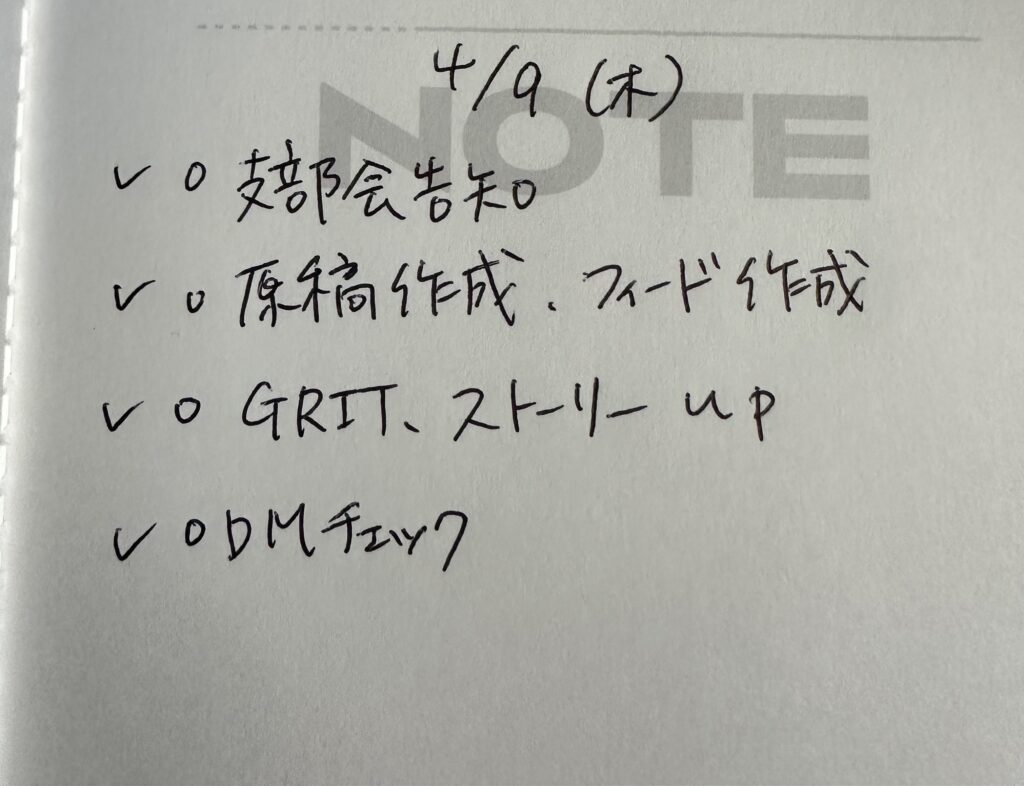 NOTE
4/9 (木)
✓ ○ 支部会告知
✓ ○ 原稿作成、フィード作成
✓ ○ GRIT、ストーリー up
✓ ○ DMチェック